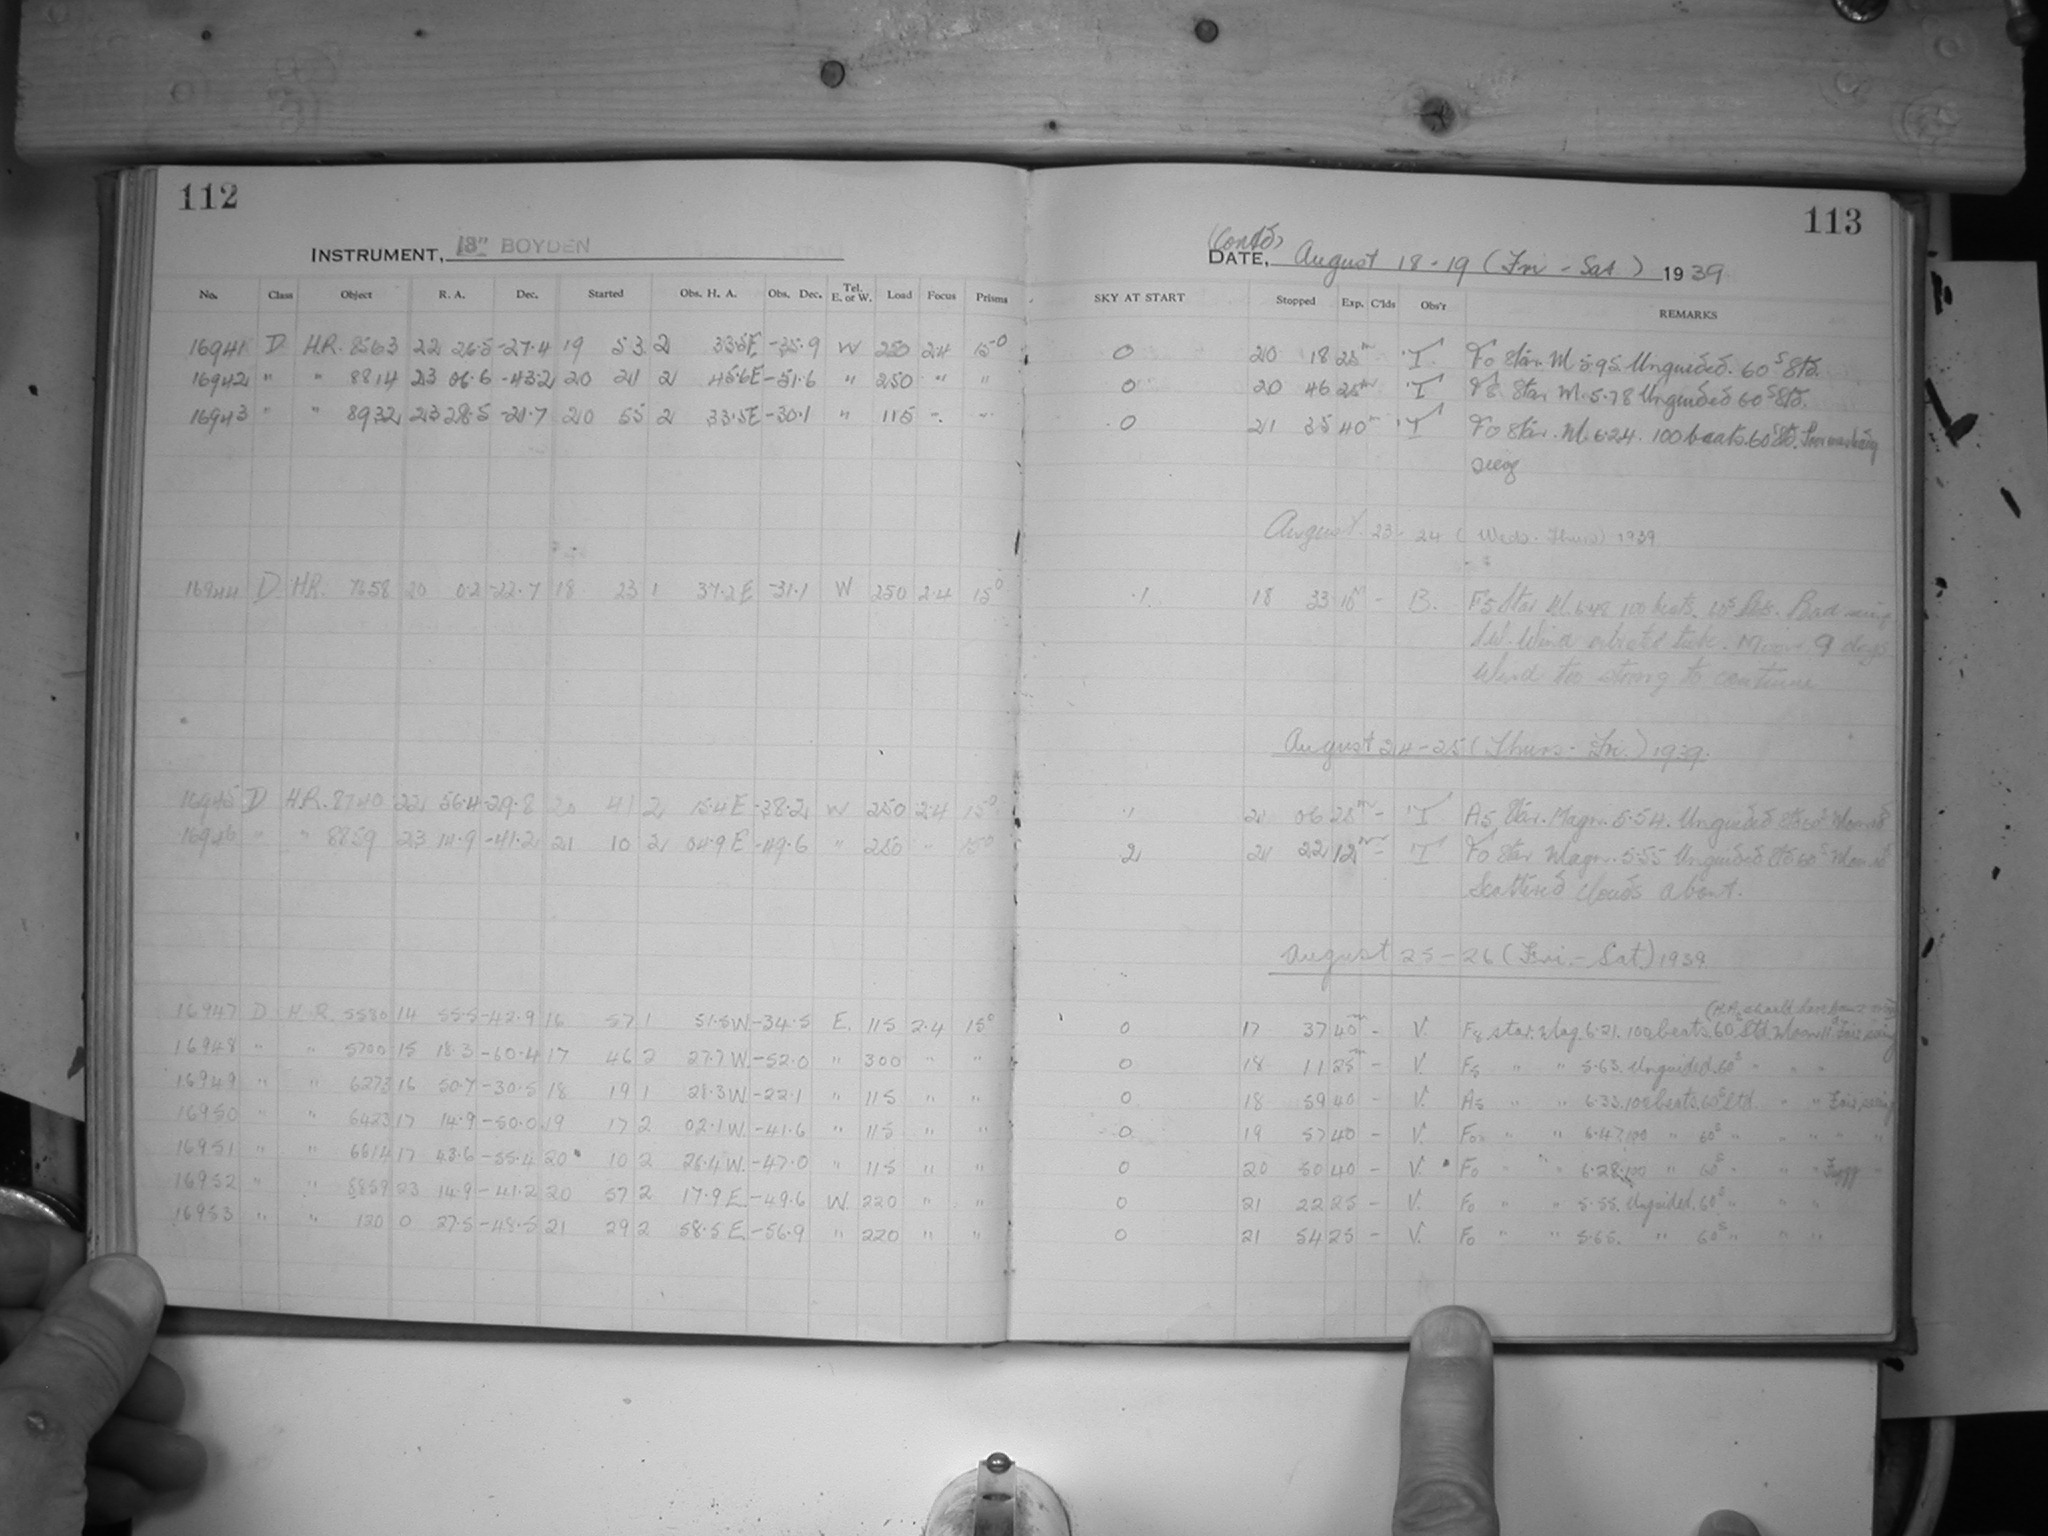 112
INSTRUMENT, 13" BOYDEN
No. Class Object R. A. Dec. Started Obs. H. A. Obs. Dec. Tel. E. or W. Load Focus Prisms
16941 D H.R. 8563 22 26.5 -27.4 19 53 2 33.5E -35.9 W 250 2.4 15°
16942 " " 8814 23 06.6 -43.2 20 21 2 45.6E -51.6 " 250 " "
16943 " " 8932 23 28.5 -21.7 20 55 2 33.5E -30.1 " 115 " "
16944 D H.R. 7658 20 0.2 -22.7 18 23 1 37.2E -31.1 W 250 2.4 15°
16945 D H.R. 8740 22 56.4 -29.8 20 41 2 15.4E -38.2 W 250 2.4 15°
16946 " " 8859 23 14.9 -41.2 21 10 2 04.9E -49.6 " 250 " 15°
16947 D H.R. 5580 14 55.5 -42.9 16 57 1 51.5W -34.5 E. 115 2.4 15°
16948 " " 5700 15 18.3 -60.4 17 46 2 27.7W -52.0 " 300 " "
16949 " " 6273 16 50.7 -30.5 18 19 1 28.3W -22.1 " 115 " "
16950 " " 6423 17 14.9 -50.0 19 17 2 02.1W -41.6 " 115 " "
16951 " " 6614 17 43.6 -55.4 20 10 2 26.4W -47.0 " 115 " "
16952 " " 8859 23 14.9 -41.2 20 57 2 17.9E -49.6 W. 220 " "
16953 " " 120 0 27.5 -48.5 21 29 2 58.5E -56.9 " 220 " "
113
(Contd)
DATE, August 18-19 (Fri - Sat) 1939
SKY AT START Stopped Exp. C'lds Obs'r REMARKS
0 20 18 25m T F0 Star. M. 5.95 Unguided. 60s Std.
0 20 46 25m T Star M. 5.78 Unguided 60s Std.
0 21 35 40m T F0 Star. M. 6.24. 100 beats. 60s Std. Poor
seeing
August 23-24 (Weds. Thurs) 1939
1 18 33 10m - B. F5 Star M. 6.48 100 beats. 60s Std. Bad seeing
S.W. Wind vibrated tube. Moon 9 days
Wind too strong to continue
August 24-25 (Thurs - Fri.) 1939.
1 21 06 25m - T A5 Star. Magn. 5.54. Unguided Std 60s Moon
2 21 22 12m - T F0 Star Magn. 5.55 Unguided Std 60s Moon
Scattered clouds about.
August 25-26 (Fri. - Sat.) 1939.
(H.A. should have been
0 17 37 40m - V. F8 star. Mag. 6.21. 100 beats. 60s Std. Moon 11d Fair seeing
0 18 11 25m - V. F5 " " 5.63. Unguided. 60s " " "
0 18 59 40 - V. A5 " " 6.33. 100 beats. 60s Std. " " Fair seeing
0 19 57 40 - V. F0 " " 6.47. 100 " 60s " " " " "
0 20 50 40 - V. F0 " " 6.28. 100 " 60s " " "
0 21 22 25 - V. F0 " " 5.55. Unguided. 60s " " "
0 21 54 25 - V. F0 " " 5.65. " 60s " " "